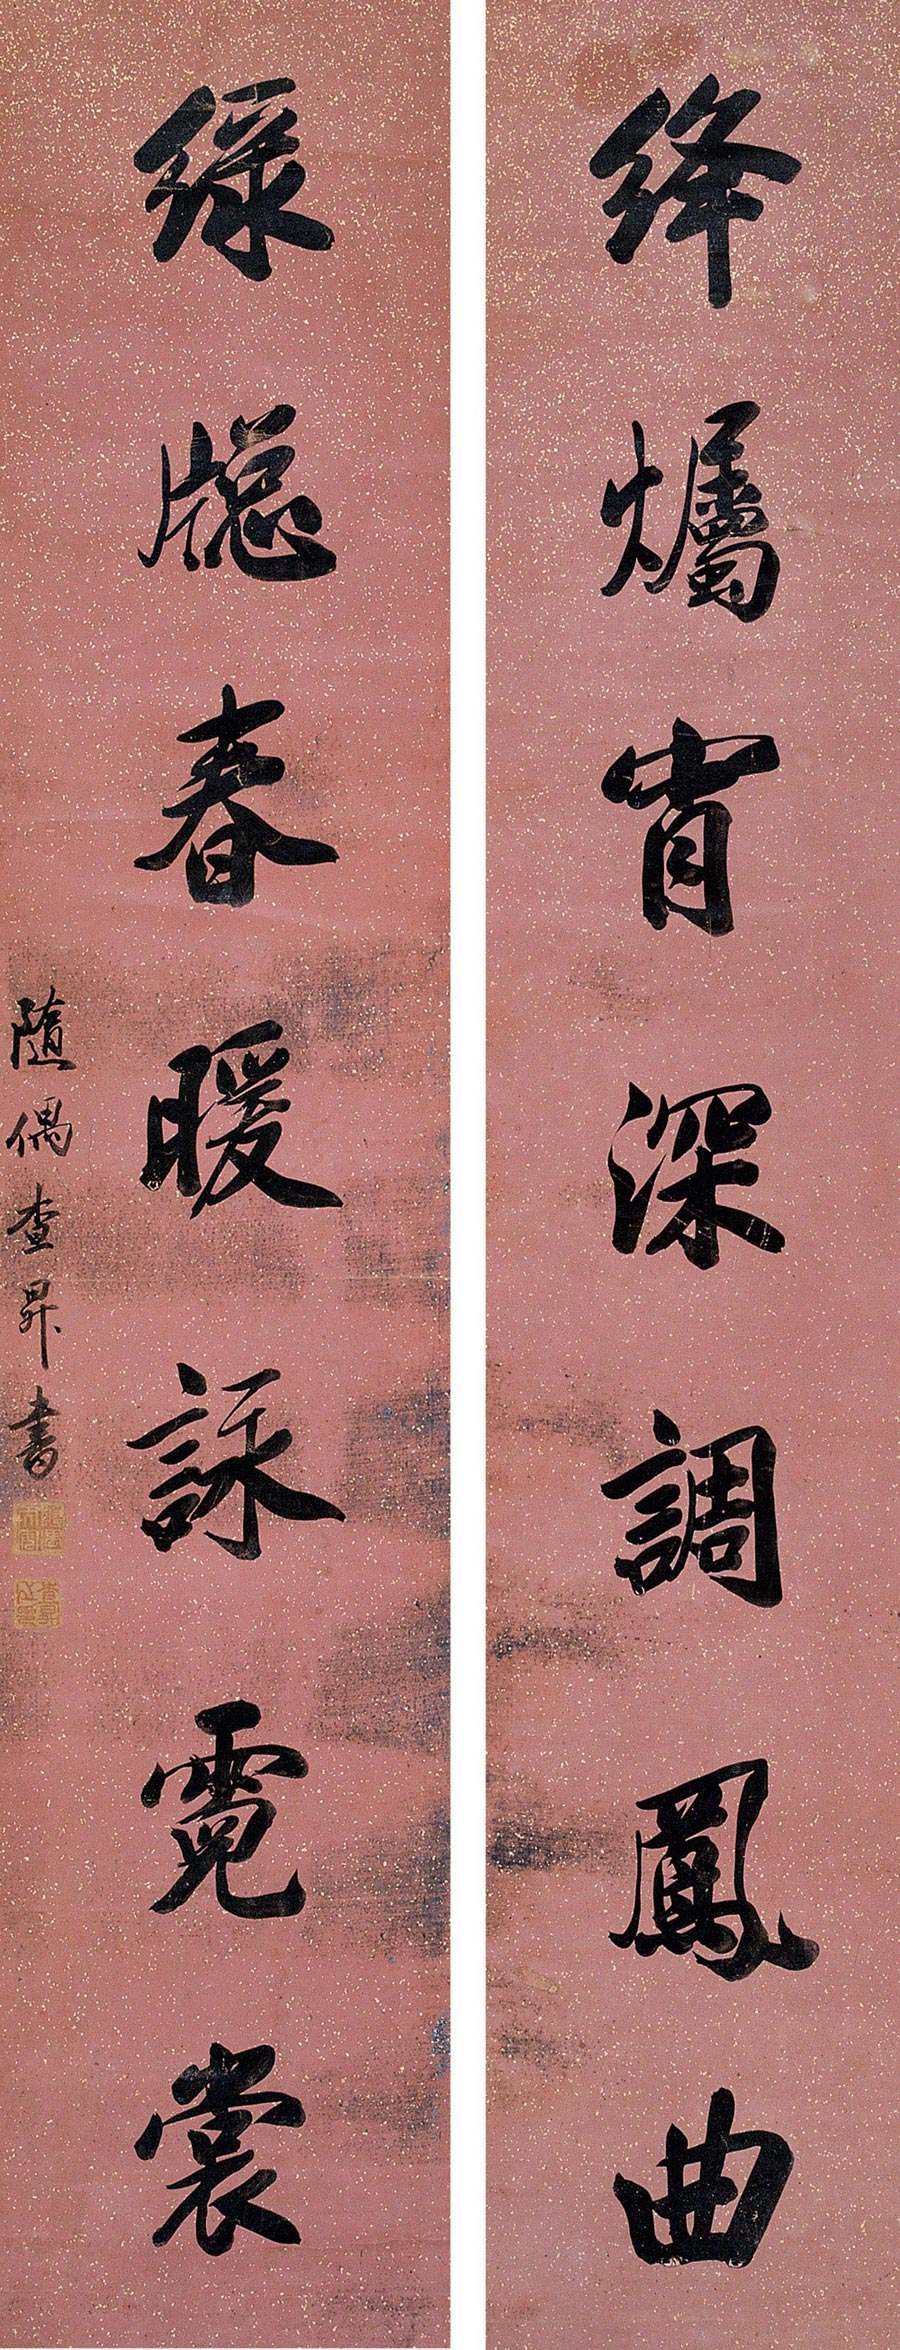 絳爥宵深調鳳曲
綠牕春暖詠霓裳
隨偶查昇書